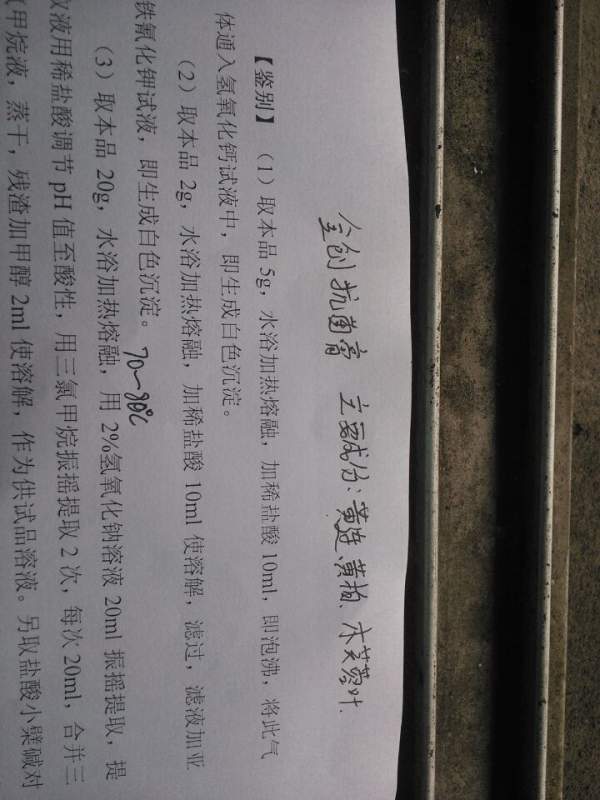 全创抗菌膏 主要成分:黄连、黄柏、木芙蓉叶.
【鉴别】 (1)取本品 5g,水浴加热熔融,加稀盐酸 10ml,即泡沸,将此气
体通入氢氧化钙试液中,即生成白色沉淀。
(2)取本品 2g,水浴加热熔融,加稀盐酸 10ml 使溶解,滤过,滤液加亚
铁氰化钾试液,即生成白色沉淀。
70~80℃
(3)取本品 20g,水浴加热熔融,用 2%氢氧化钠溶液 20ml 振摇提取,提
取液用稀盐酸调节 pH 值至酸性,用三氯甲烷振摇提取 2 次,每次 20ml,合并三
氯甲烷液,蒸干,残渣加甲醇 2ml 使溶解,作为供试品溶液。另取盐酸小檗碱对